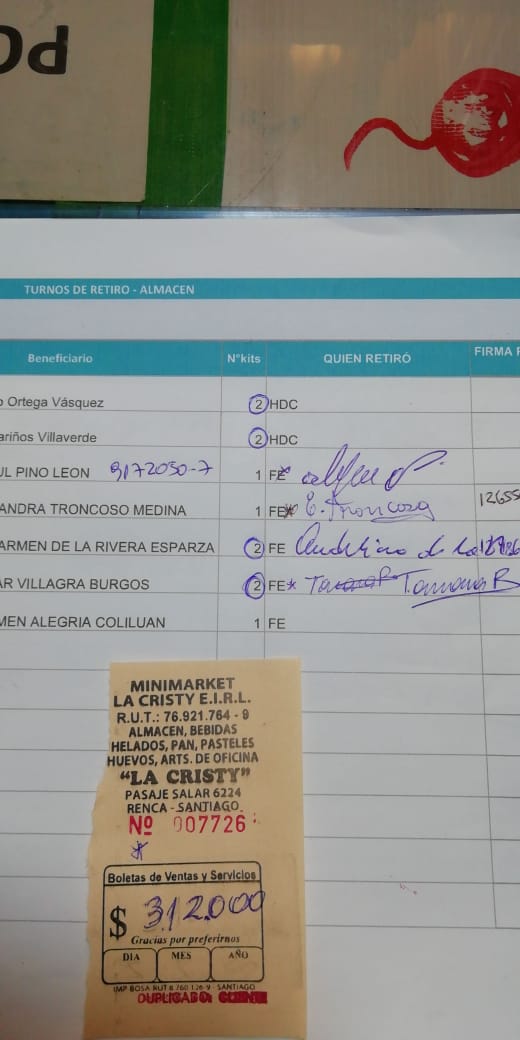 PO
TURNOS DE RETIRO - ALMACEN
Beneficiario N°kits QUIEN RETIRÓ FIRMA
Ortega Vásquez 2 HDC
ariños Villaverde 2 HDC
UL PINO LEON 9172050-7 1 FE*
ANDRA TRONCOSO MEDINA 1 FE* E. Troncoso 12655
ARMEN DE LA RIVERA ESPARZA 2 FE de la
AR VILLAGRA BURGOS 2 FE* Tamara B
MEN ALEGRIA COLILUAN 1 FE
MINIMARKET
LA CRISTY E.I.R.L.
R.U.T.: 76.921.764 - 9
ALMACEN, BEBIDAS
HELADOS, PAN, PASTELES
HUEVOS, ARTS. DE OFICINA
“LA CRISTY”
PASAJE SALAR 6224
RENCA - SANTIAGO.
Nº 007726
*
Boletas de Ventas y Servicios
$ 312.000
Gracias por preferirnos
DIA MES AÑO
IMP BOSA RUT 8 760 126-9 - SANTIAGO
DUPLICADO: CLIENTE